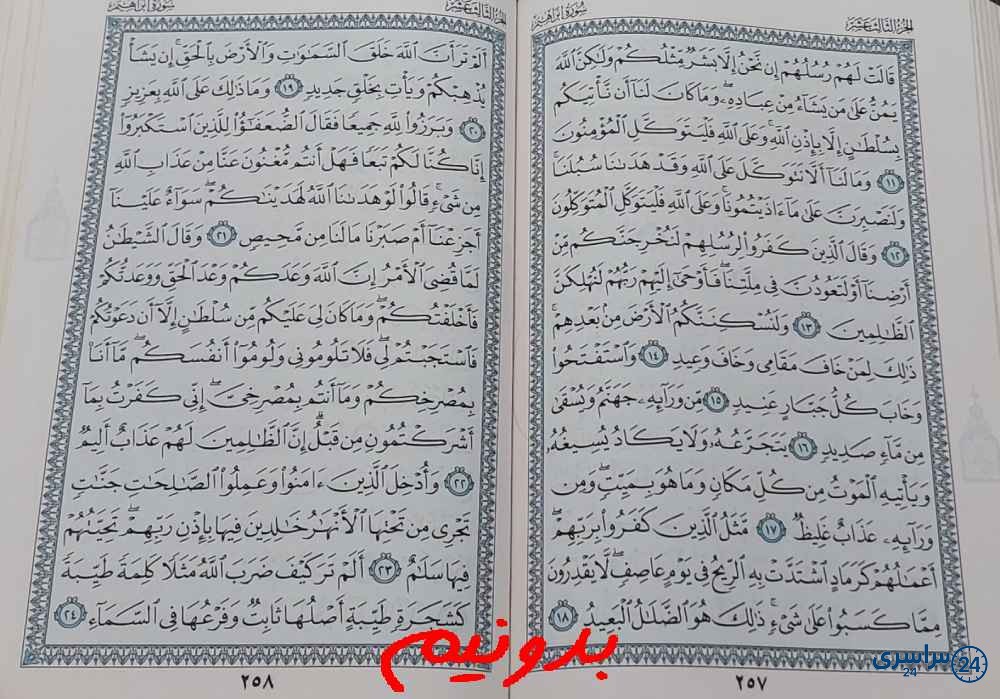 الجزء الثالث عشر
سورة إبراهيم
قَالَتْ لَهُمْ رُسُلُهُمْ إِن نَّحْنُ إِلَّا بَشَرٌ مِّثْلُكُمْ وَلَٰكِنَّ ٱللَّهَ
يَمُنُّ عَلَىٰ مَن يَشَآءُ مِنْ عِبَادِهِۦ ۖ وَمَا كَانَ لَنَآ أَن نَّأْتِيَكُم
بِسُلْطَٰنٍ إِلَّا بِإِذْنِ ٱللَّهِ ۚ وَعَلَى ٱللَّهِ فَلْيَتَوَكَّلِ ٱلْمُؤْمِنُونَ
١١ وَمَا لَنَآ أَلَّا نَتَوَكَّلَ عَلَى ٱللَّهِ وَقَدْ هَدَىٰنَا سُبُلَنَا ۚ
وَلَنَصْبِرَنَّ عَلَىٰ مَآ ءَاذَيْتُمُونَا ۚ وَعَلَى ٱللَّهِ فَلْيَتَوَكَّلِ ٱلْمُتَوَكِّلُونَ
١٢ وَقَالَ ٱلَّذِينَ كَفَرُوا۟ لِرُسُلِهِمْ لَنُخْرِجَنَّكُم مِّنْ
أَرْضِنَآ أَوْ لَتَعُودُنَّ فِى مِلَّتِنَا ۖ فَأَوْحَىٰٓ إِلَيْهِمْ رَبُّهُمْ لَنُهْلِكَنَّ
ٱلظَّٰلِمِينَ ١٣ وَلَنُسْكِنَنَّكُمُ ٱلْأَرْضَ مِنۢ بَعْدِهِمْ ۚ
ذَٰلِكَ لِمَنْ خَافَ مَقَامِى وَخَافَ وَعِيدِ ١٤ وَٱسْتَفْتَحُوا۟
وَخَابَ كُلُّ جَبَّارٍ عَنِيدٍ ١٥ مِّن وَرَآئِهِۦ جَهَنَّمُ وَيُسْقَىٰ
مِن مَّآءٍ صَدِيدٍ ١٦ يَتَجَرَّعُهُۥ وَلَا يَكَادُ يُسِيغُهُۥ
وَيَأْتِيهِ ٱلْمَوْتُ مِن كُلِّ مَكَانٍ وَمَا هُوَ بِمَيِّتٍ ۖ وَمِن
وَرَآئِهِۦ عَذَابٌ غَلِيظٌ ١٧ مَّثَلُ ٱلَّذِينَ كَفَرُوا۟ بِرَبِّهِمْ ۖ
أَعْمَٰلُهُمْ كَرَمَادٍ ٱشْتَدَّتْ بِهِ ٱلرِّيحُ فِى يَوْمٍ عَاصِفٍ ۖ لَّا يَقْدِرُونَ
مِمَّا كَسَبُوا۟ عَلَىٰ شَىْءٍ ۚ ذَٰلِكَ هُوَ ٱلضَّلَٰلُ ٱلْبَعِيدُ ١٨
٢٥٧
الجزء الثالث عشر
سورة إبراهيم
أَلَمْ تَرَ أَنَّ ٱللَّهَ خَلَقَ ٱلسَّمَٰوَٰتِ وَٱلْأَرْضَ بِٱلْحَقِّ ۚ إِن يَشَأْ
يُذْهِبْكُمْ وَيَأْتِ بِخَلْقٍ جَدِيدٍ ١٩ وَمَا ذَٰلِكَ عَلَى ٱللَّهِ بِعَزِيزٍ
٢٠ وَبَرَزُوا۟ لِلَّهِ جَمِيعًا فَقَالَ ٱلضُّعَفَٰٓؤُا۟ لِلَّذِينَ ٱسْتَكْبَرُوٓا۟
إِنَّا كُنَّا لَكُمْ تَبَعًا فَهَلْ أَنتُم مُّغْنُونَ عَنَّا مِنْ عَذَابِ ٱللَّهِ
مِن شَىْءٍ ۚ قَالُوا۟ لَوْ هَدَىٰنَا ٱللَّهُ لَهَدَيْنَٰكُمْ ۖ سَوَآءٌ عَلَيْنَآ
أَجَزِعْنَآ أَمْ صَبَرْنَا مَا لَنَا مِن مَّحِيصٍ ٢١ وَقَالَ ٱلشَّيْطَٰنُ
لَمَّا قُضِىَ ٱلْأَمْرُ إِنَّ ٱللَّهَ وَعَدَكُمْ وَعْدَ ٱلْحَقِّ وَوَعَدتُّكُمْ
فَأَخْلَفْتُكُمْ ۖ وَمَا كَانَ لِىَ عَلَيْكُم مِّن سُلْطَٰنٍ إِلَّآ أَن دَعَوْتُكُمْ
فَٱسْتَجَبْتُمْ لِى ۖ فَلَا تَلُومُونِى وَلُومُوٓا۟ أَنفُسَكُم ۖ مَّآ أَنَا۠
بِمُصْرِخِكُمْ وَمَآ أَنتُم بِمُصْرِخِىَّ ۖ إِنِّى كَفَرْتُ بِمَآ
أَشْرَكْتُمُونِ مِن قَبْلُ ۗ إِنَّ ٱلظَّٰلِمِينَ لَهُمْ عَذَابٌ أَلِيمٌ
٢٢ وَأُدْخِلَ ٱلَّذِينَ ءَامَنُوا۟ وَعَمِلُوا۟ ٱلصَّٰلِحَٰتِ جَنَّٰتٍ
تَجْرِى مِن تَحْتِهَا ٱلْأَنْهَٰرُ خَٰلِدِينَ فِيهَا بِإِذْنِ رَبِّهِمْ ۖ تَحِيَّتُهُمْ
فِيهَا سَلَٰمٌ ٢٣ أَلَمْ تَرَ كَيْفَ ضَرَبَ ٱللَّهُ مَثَلًا كَلِمَةً طَيِّبَةً
كَشَجَرَةٍ طَيِّبَةٍ أَصْلُهَا ثَابِتٌ وَفَرْعُهَا فِى ٱلسَّمَآءِ ٢٤
٢٥٨
بدونیم
سراسری
24
24